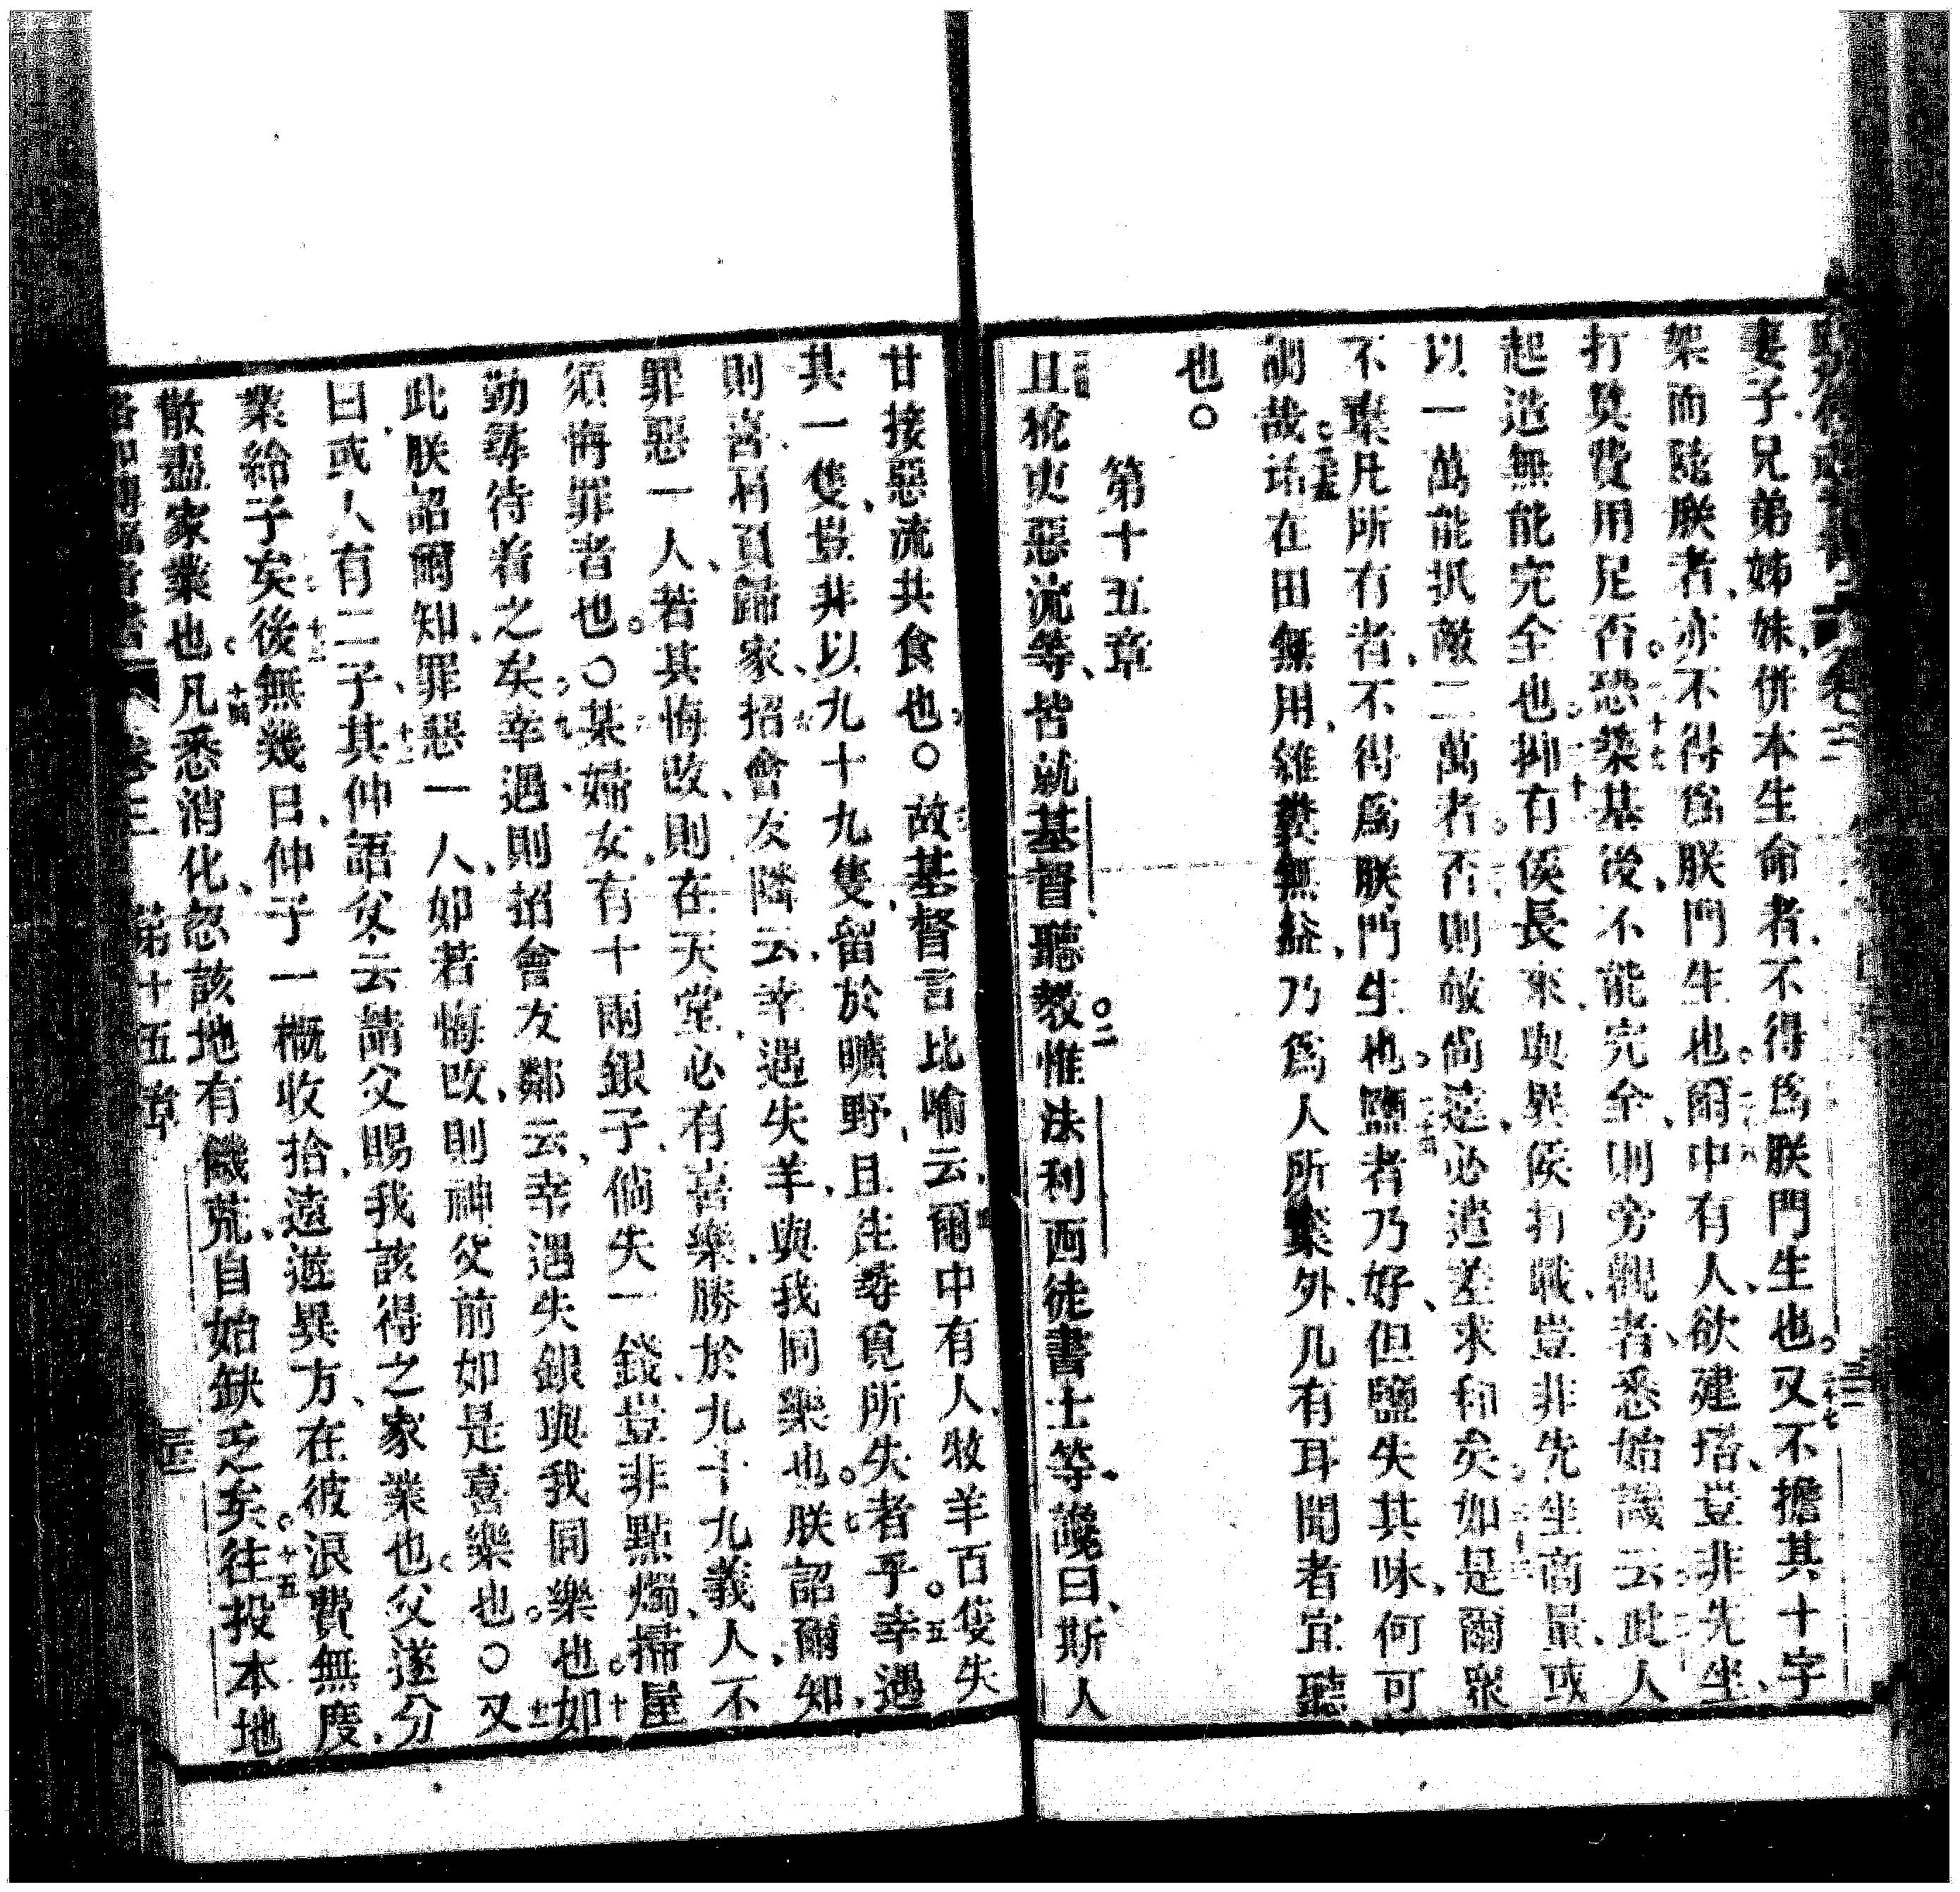 妻子兄弟姊妹、併本生命者、不得爲朕門生也。二十七又不擔其十字
架而隨朕者、亦不得爲朕門生也。二十八爾中有人、欲建塔、豈非先坐、
打算費用足否。二十九恐築基後、不能完全、則旁觀者、悉始譏云、此人
起造無能完全也。三十抑有侯長來、與異侯打戰、豈非先坐商量、或
以一萬能抓敵二萬者否。則敵尚遠、必遣差求和矣。如是爾衆
不棄凡所有者、不得爲朕門生也。三十四鹽者乃好、但鹽失其味、何可
調哉。三十五話在田無用、雜糞無益、乃爲人所棄外、凡有耳聞者宜聽
也。〇
第十五章
且稅吏惡流等、皆就基督聽教。二惟法利西徒書士等、讒曰、斯人
甘接惡流共食也。〇三故基督言比喻云、四爾中有人、牧羊百隻、失
其一隻、豈非以九十九隻、留於曠野、且往尋覓所失者乎。五幸遇
則喜、肩負歸家、六招會友隣云、幸遇失羊、與我同樂也。七朕詔爾知、
罪惡一人、若其悔改、則在天堂、必有喜樂、勝於九十九義人不
須悔罪者也。〇某婦女、有十兩銀子、倘失一錢、豈非點燭、掃屋
勤尋待着之矣。九幸遇、則招會友鄰云、幸遇失銀、與我同樂也。十如
此朕詔爾知、罪惡一人、如若悔改、則神父前如是喜樂也。〇十一又
曰、或人有二子、十二其仲語父云、請父賜我該得之家業也。父遂分
業給子矣。十三後無幾日、仲子一概收拾、遠遊異方、在彼浪費無度、
散盡家業也。十四凡悉消化、忽該地有饑荒、自始缺乏矣。十五往投本地
卷三 第十五章